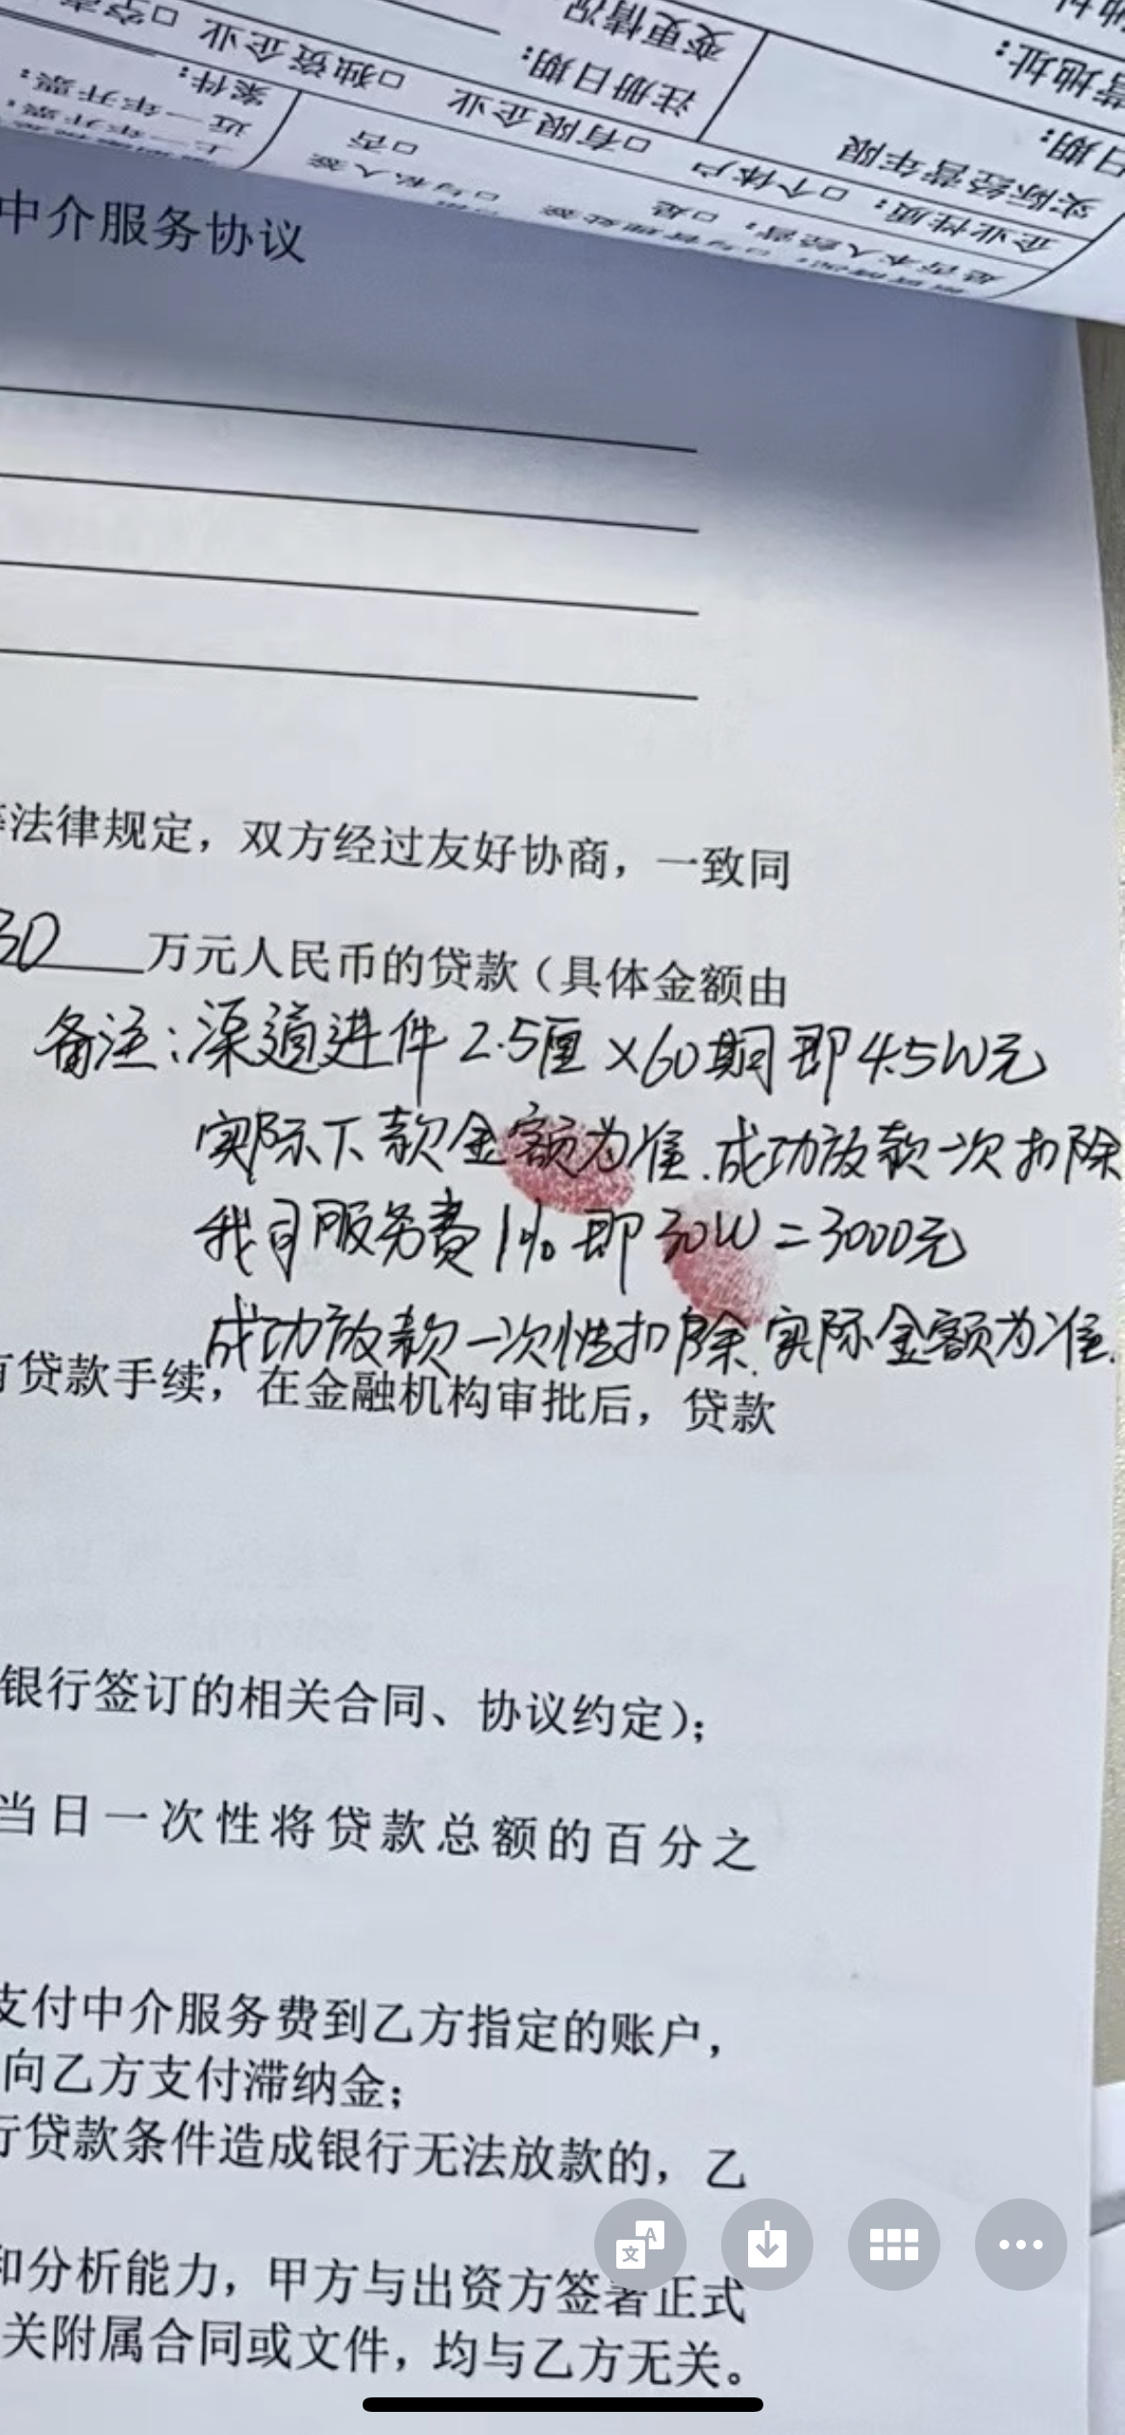 变更情况
营地址：
注册日期：
□独资企业
案件：
日期：
实际经营年限
□有限企业
近一年开票：
企业性质：
□个体户
□否
上一年开票：
是否本人经营：
□是
中介服务协议
法律规定，双方经过友好协商，一致同
30 万元人民币的贷款（具体金额由
备注：渠道进件2.5厘×60期即4.5W元
实际下款金额为准.成功放款一次扣除
我司服务费1% 即30W=3000元
成功放款一次性扣除.实际金额为准.
贷款手续，在金融机构审批后，贷款
银行签订的相关合同、协议约定）；
当日一次性将贷款总额的百分之
支付中介服务费到乙方指定的账户，
向乙方支付滞纳金；
行贷款条件造成银行无法放款的，乙
和分析能力，甲方与出资方签署正式
关附属合同或文件，均与乙方无关。